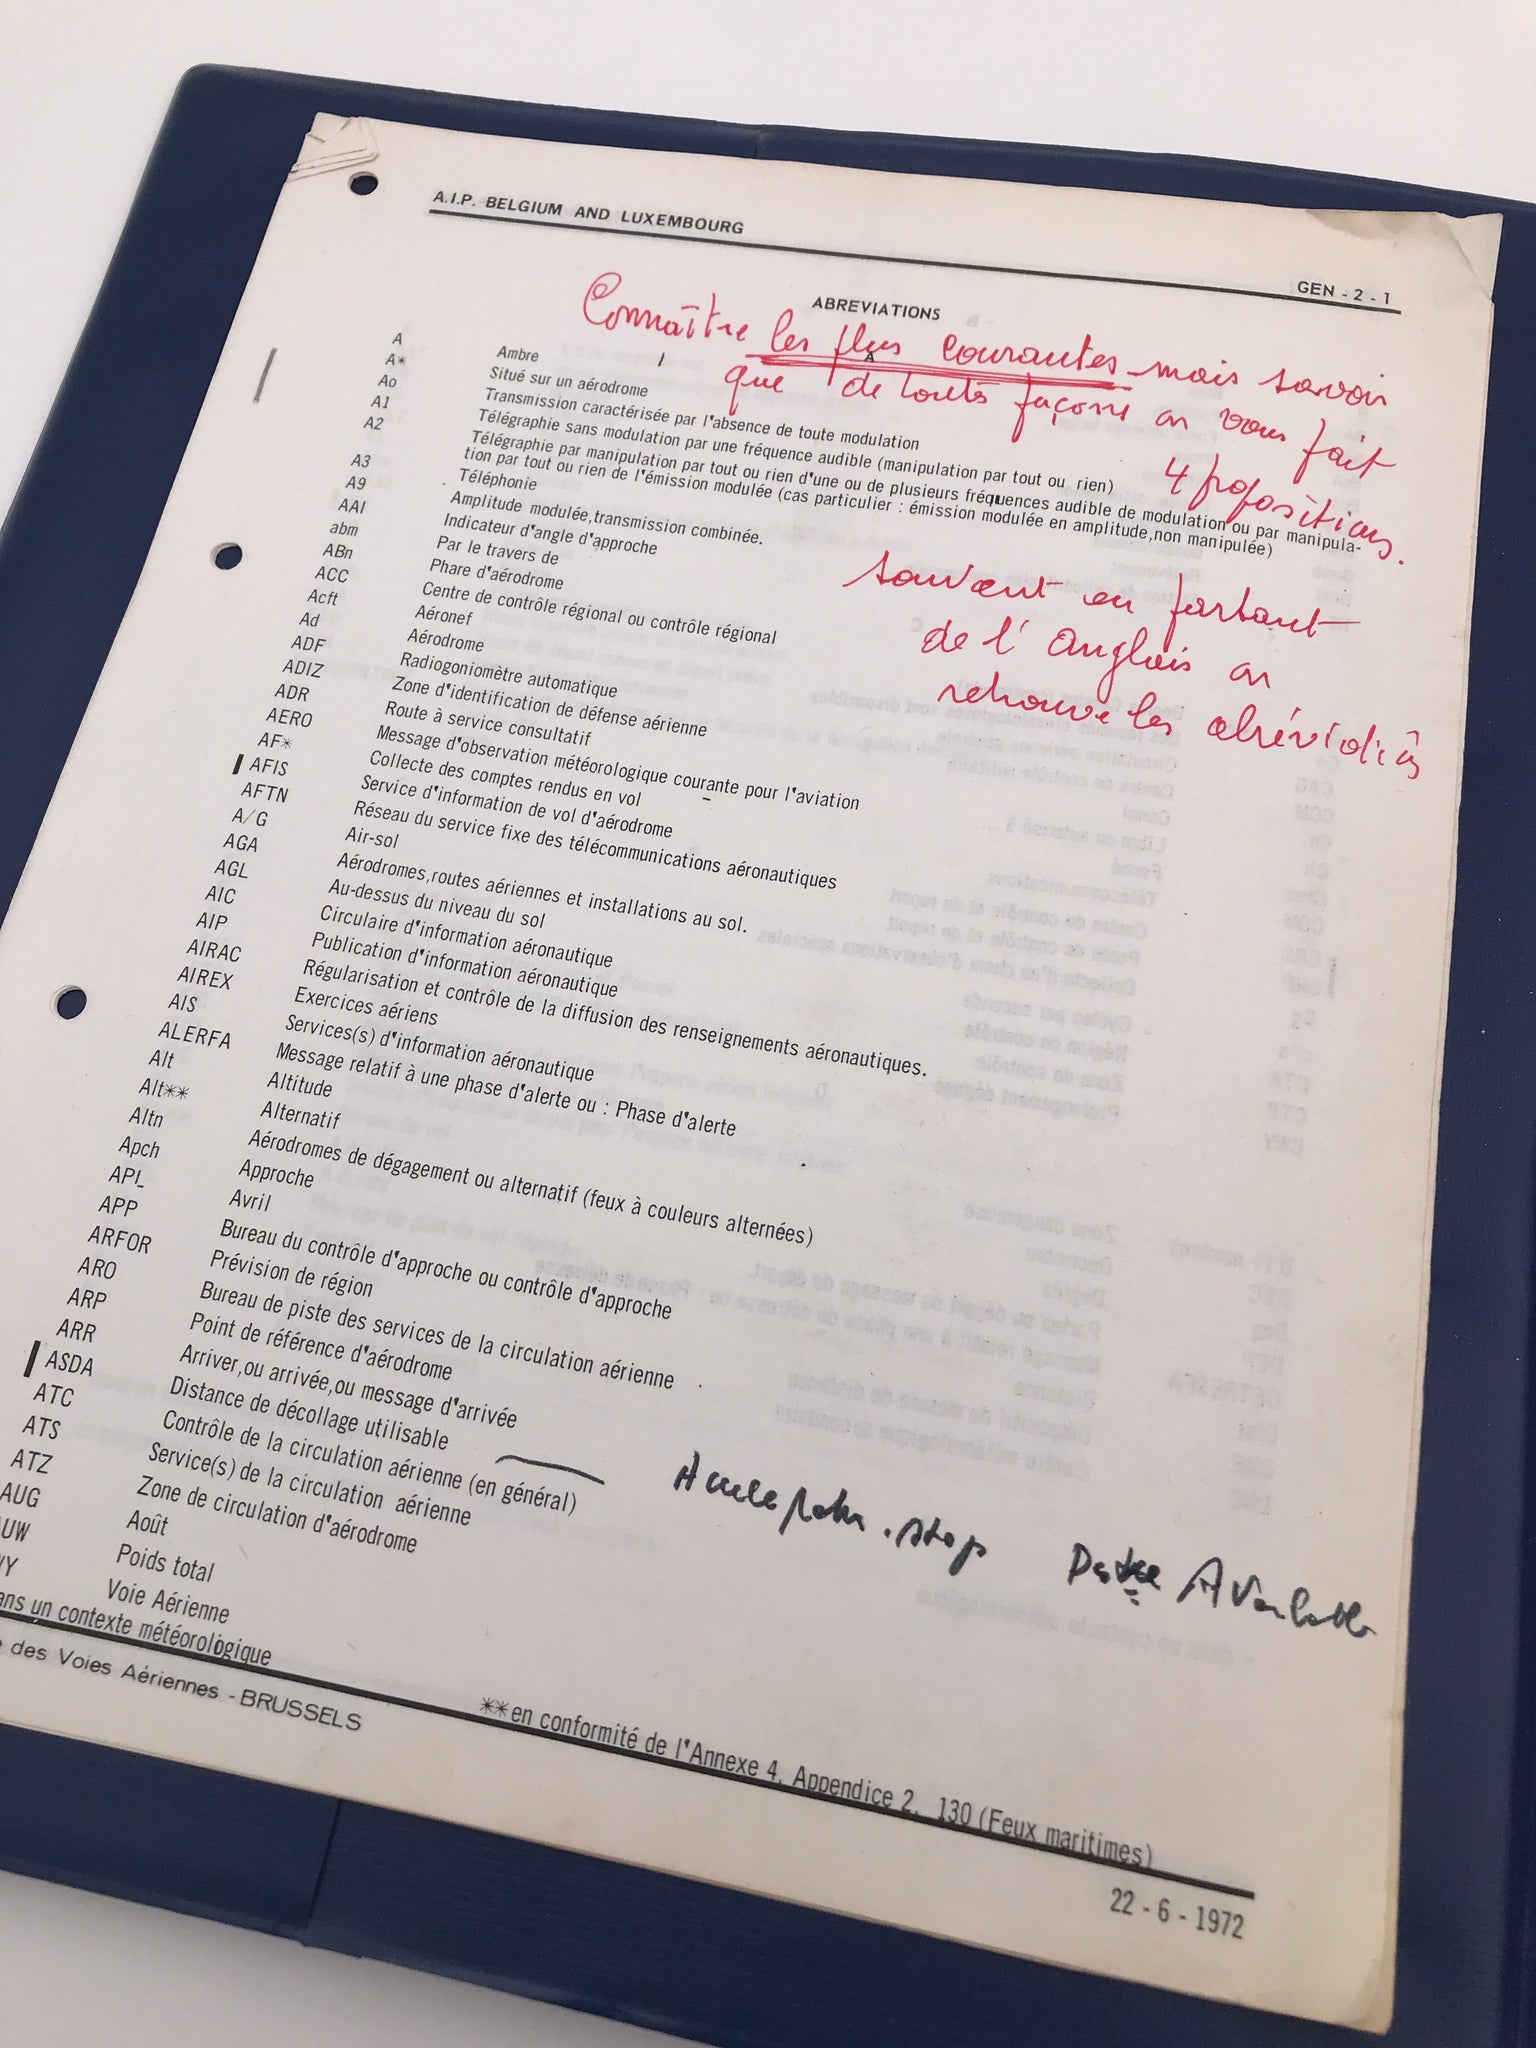 A.I.P. BELGIUM AND LUXEMBOURG
GEN - 2 - 1
ABREVIATIONS
Connaître les plus courantes mais savoir
que de toutes façons on vous fait
4 propositions.
souvent en partant
de l'anglais on
retrouve les abréviations
A Ambre
A* Situé sur un aérodrome
Ao Transmission caractérisée par l'absence de toute modulation
A1 Télégraphie sans modulation par une fréquence audible (manipulation par tout ou rien)
A2 Télégraphie par manipulation par tout ou rien d'une ou de plusieurs fréquences audible de modulation ou par manipula-
tion par tout ou rien de l'émission modulée (cas particulier : émission modulée en amplitude,non manipulée)
A3 Téléphonie
A9 Amplitude modulée,transmission combinée.
AAI Indicateur d'angle d'approche
abm Par le travers de
ABn Phare d'aérodrome
ACC Centre de contrôle régional ou contrôle régional
Acft Aéronef
Ad Aérodrome
ADF Radiogoniomètre automatique
ADIZ Zone d'identification de défense aérienne
ADR Route à service consultatif
AERO Message d'observation météorologique courante pour l'aviation
AF* Collecte des comptes rendus en vol
AFIS Service d'information de vol d'aérodrome
AFTN Réseau du service fixe des télécommunications aéronautiques
A/G Air-sol
AGA Aérodromes,routes aériennes et installations au sol.
AGL Au-dessus du niveau du sol
AIC Circulaire d'information aéronautique
AIP Publication d'information aéronautique
AIRAC Régularisation et contrôle de la diffusion des renseignements aéronautiques.
AIREX Exercices aériens
AIS Services(s) d'information aéronautique
ALERFA Message relatif à une phase d'alerte ou : Phase d'alerte
Alt Altitude
Alt** Alternatif
Altn Aérodromes de dégagement ou alternatif (feux à couleurs alternées)
Apch Approche
APL Avril
APP Bureau du contrôle d'approche ou contrôle d'approche
ARFOR Prévision de région
ARO Bureau de piste des services de la circulation aérienne
ARP Point de référence d'aérodrome
ARR Arriver,ou arrivée,ou message d'arrivée
ASDA Distance de décollage utilisable
ATC Contrôle de la circulation aérienne (en général)
ATS Service(s) de la circulation aérienne
ATZ Zone de circulation d'aérodrome
AUG Août
UW Poids total
Y Voie Aérienne
stop Available
ans un contexte météorologique
**en conformité de l'Annexe 4, Appendice 2, 130 (Feux maritimes)
e des Voies Aériennes - BRUSSELS
22 - 6 - 1972